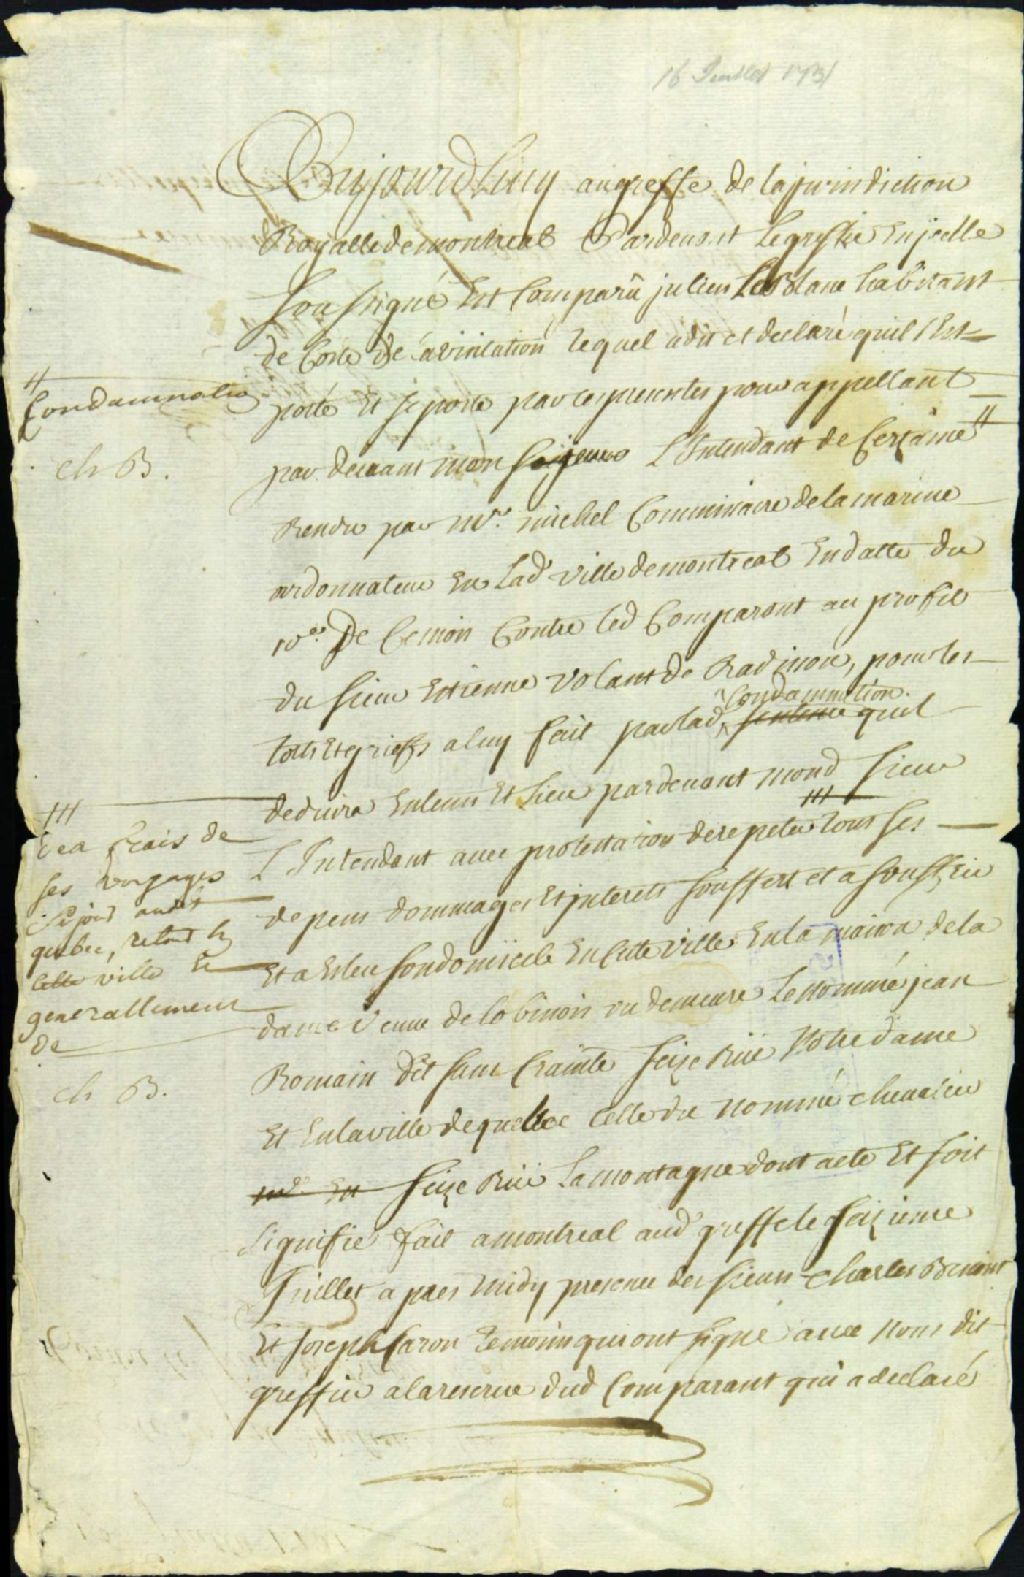 16 Juillet 1731
Aujourdhuy au greffe de la jurisdiction
Royalle de montreal Pardevant Le greffier En jcelle
soussigné Est Comparû julien Leblanc habitant
de Coste de lavisitation lequel a dit et declaré quil sEst
porté Et se porte par ces presentes pour appellant
par devant mon seigneur L'Intendant de Certaine //
// Condamnation
ch B.
Rendu par Mr. michel Commissaire de la marine
ordonnateur En Lad' ville de montreal En datte du
10es. De Ce mois Contre led Comparant au profit
du sieur Estienne Volant de Radisson, pour les
torts Et griefs a luy fait par lad' sentence condamnation. quil
deduira En temps Et Lieu pardevant mond sieur
L'Intendant avec protestation de repeter /// tous ses
/// les frais de
ses voyages
sejour audt
quebec, retour En
Cette ville Et
generallement
de
ch B.
depens dommages Et jnterets souffert et a souffrir
Et a Esleu son domicile En Cette ville En la maison de la
dame Veuve de lobinois ou demeure Le nommé jean
Romain dit sans Crainte size Rüe Notre dame
Et En la ville de quebec Celle du nommé chevalier
size Rüe La montagne dont acte Et soit
signifié fait a montreal aud' greffe le seizieme
Juillet apres midy presence des sieurs Charles Benoint
Et Joseph Caron temoins qui ont signé avec nous dit
greffier a la reserve dud Comparant qui a declaré